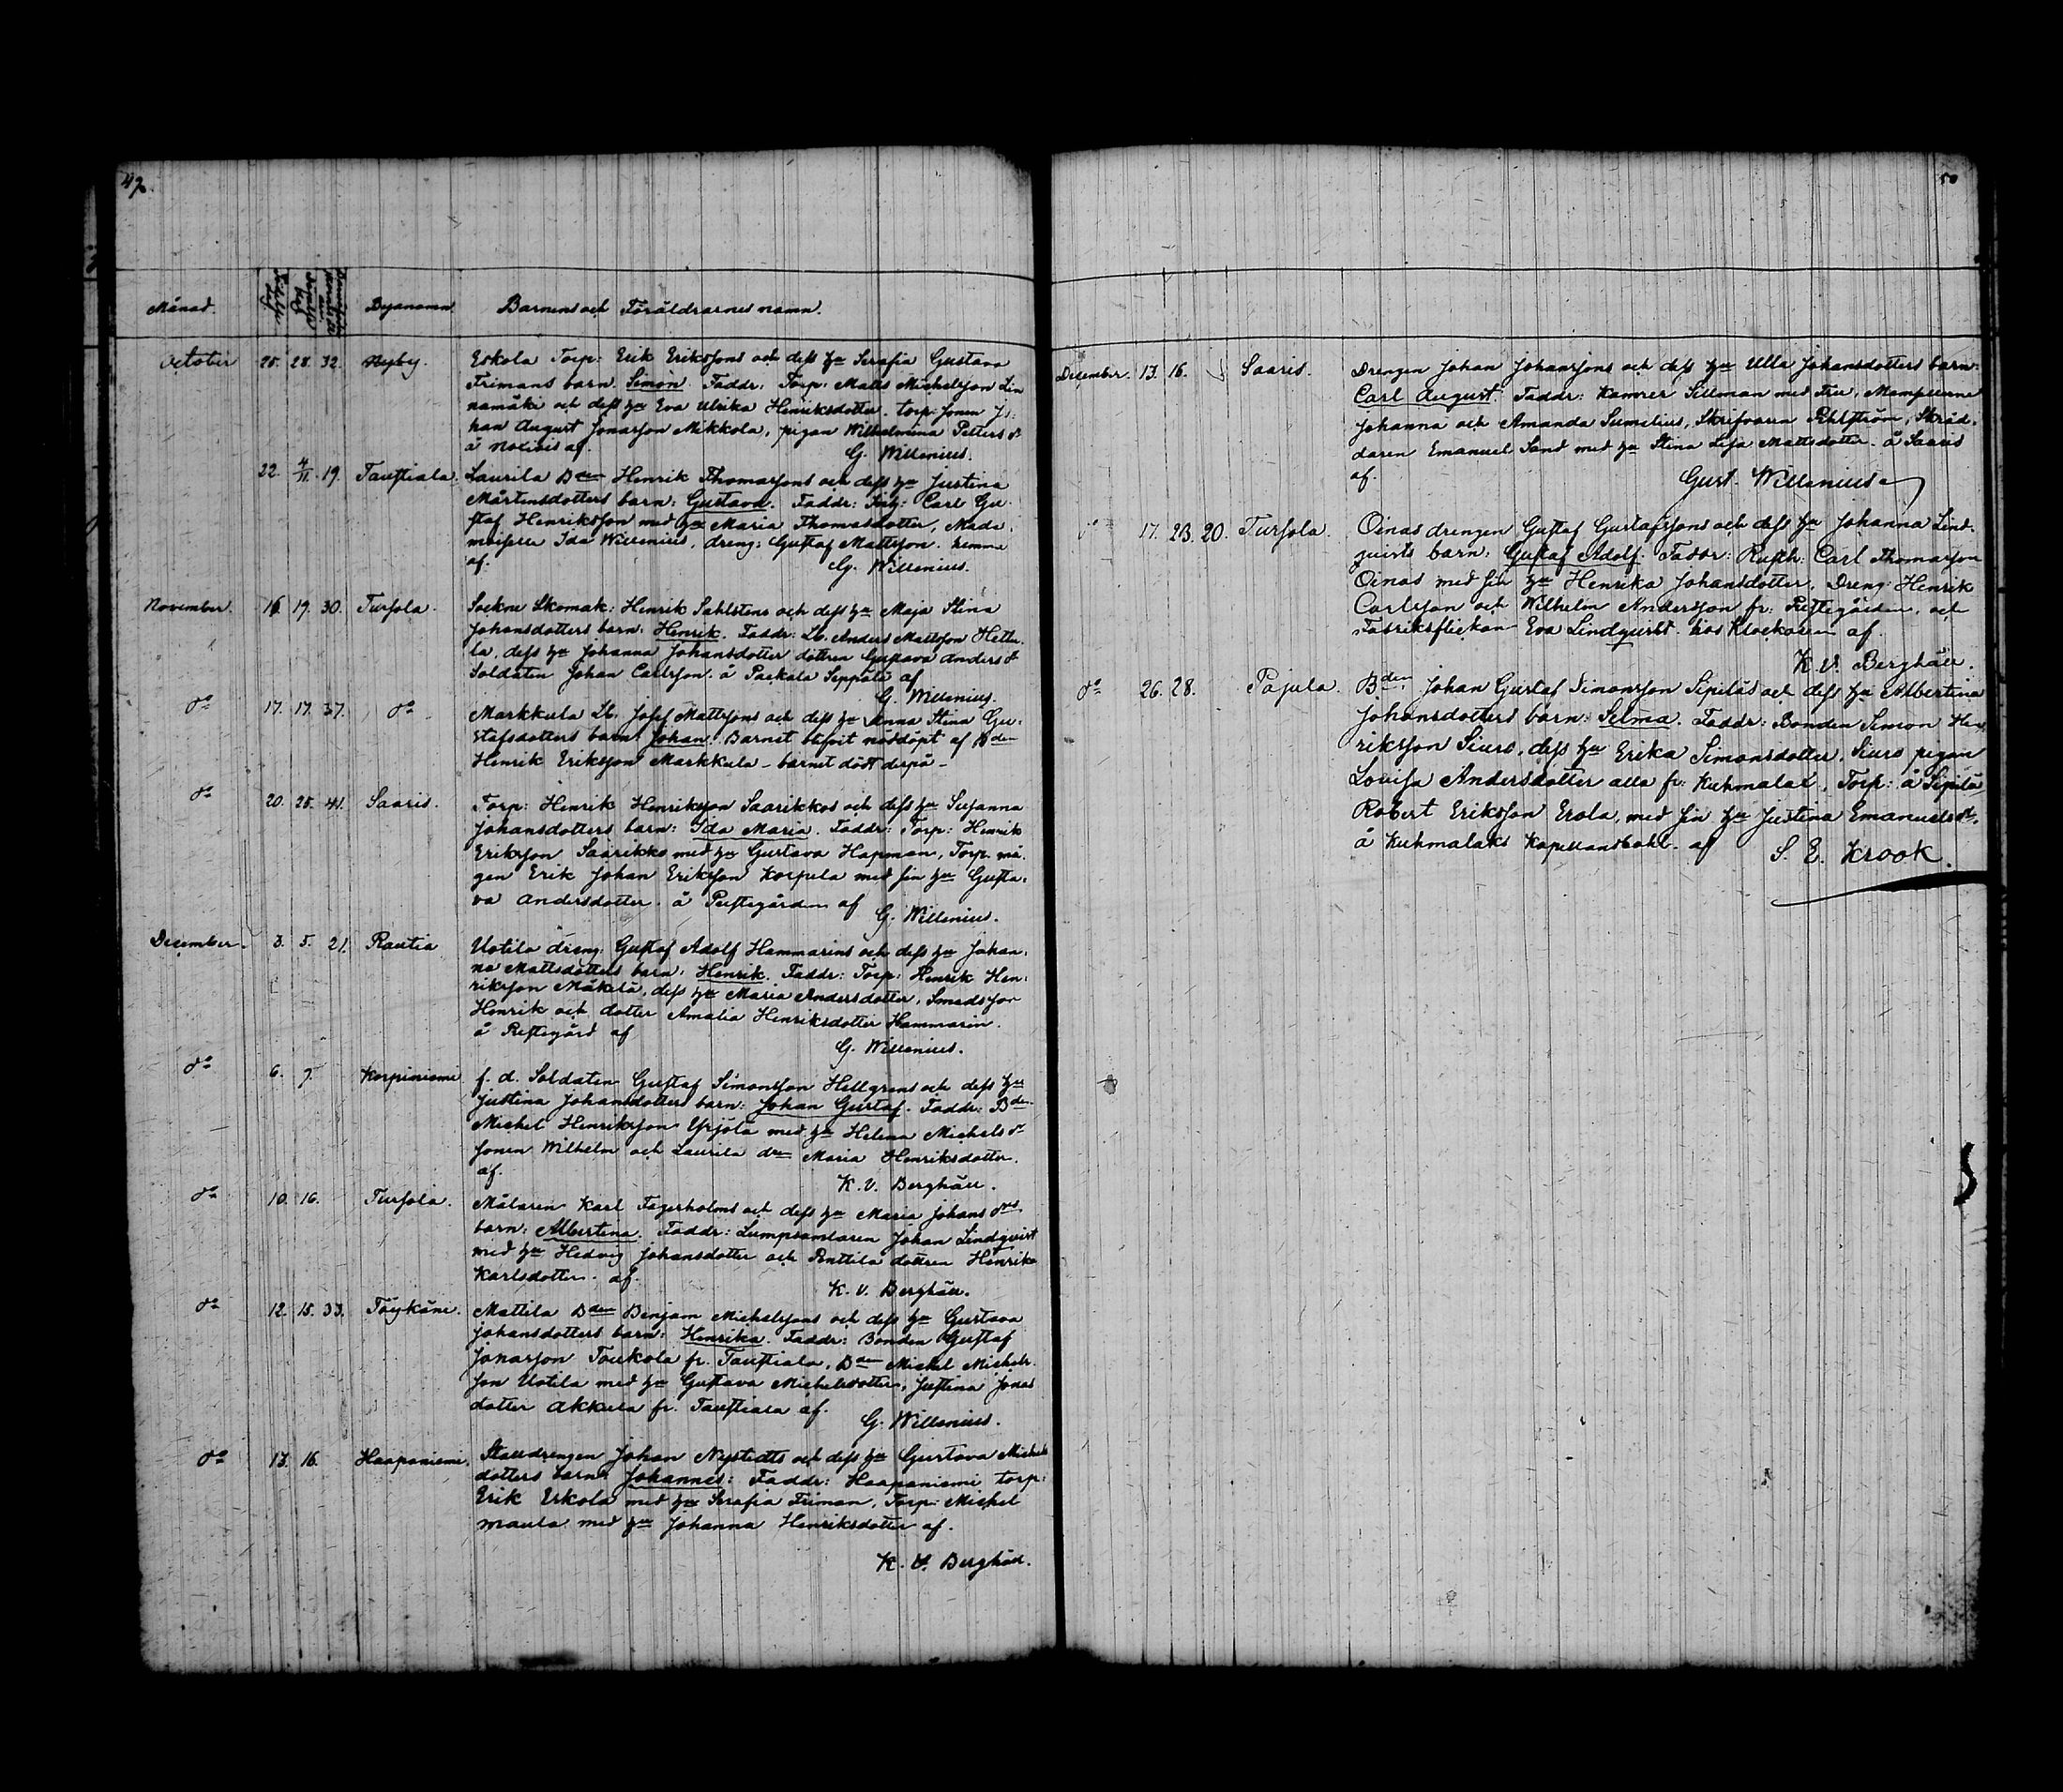 Månad. Byanamn. Barnens och Föräldrarnes namn.
October 25. 28. 32. Nyby. Eskola Torp: Erik Erikssons och dess hu Serafia Gustava
Frimans barn. Simon. Faddr: Torp: Matts Michelsson Lin
namäki och dess hu Eva Ulrika Henriksdotter. torp: sonen Jo:
han August Jonasson Mikkola, pigan Wilhelmina Petters dr
å Notivis af.
G. Willenius.
22. 4/11. 19. Taustiala. Laurila Bden Henrik Thomassons och dess hu Justina
Mårtensdotters barn: Gustava. Faddr: Inh: Carl Gu
staf Henriksson med hu Maria Thomasdotter, Made
moiselle Ida Willenius, dreng: Gustaf Mattsson. hemma
af.
G. Willenius.
November. 16. 19. 30. Tursola. Sockne Skomak: Henrik Sahlstens och dess hu Maja Stina
Johansdotters barn: Henrik. Faddr: Lb. Anders Mattsson
la, dess hu Johanna Johansdotter dottren Gustava Anders dr
Soldaten Johan Carlsson. å Paekola Seppälä af
G. Willenius.
do 17. 17. 37. do Markkula Lb. Josef Mattssons och dess hu Anna Stina Gu:
stafsdotters barn: Johan. Barnet blifvit nöddöpt af Bden
Henrik Eriksson Markkula - barnet dödt derpå -
do 20. 25. 41. Saaris. Torp: Henrik Henriksson Saarikkos och dess hu Susanna
Johansdotters barn: Ida Maria. Faddr: Torp: Henrik
Eriksson Saarikko med hu Gustava Hapman, Torp. må
gen Erik Johan Eriksson Korpela med sin hu Gusta:
va Andersdotter. å Prestegården af
G. Willenius.
December. 3. 5. 21. Rautia Uotila dreng Gustaf Adolf Hammarins och dess hu Johan:
na Mattsdotters barn: Henrik. Faddr: Torp: Henrik Hen:
riksson Mäkelä, dess hu Maria Andersdotter, Smedsson
Henrik och dotter Amalia Henriksdotter Hammarin.
å Prestegård af
G. Willenius.
do 6. 7. Korpiniemi f. d. Soldaten Gustaf Simonsson Hellgrens och dess hu
Justina Johansdotters barn: Johan Gustaf. Faddr: Bden
Michel Henriksson Yrjölä med hu Helena Michels dr
sonen Wilhelm och Laurila drn Maria Henriksdotter.
af.
K. V. Berghäll.
do 10. 16. Tursola. Målaren Karl Fagerholms och dess hu Maria Johans drs
barn: Albertina. Faddr: Lumpsamlaren Johan Lindqvist
med hu Hedvig Johansdotter och Penttilä dottren Henrika
Karlsdotter. af.
K. V. Berghäll.
do 12. 15. 33. Töykäne. Mattila Bden Benjam Michelssons och dess hu Gustava
Johansdotters barn: Henrika. Faddr: Bonden Gustaf
Jonasson Toukola fr. Taustiala, Bden Michel Michels
son Uotila med hu Gustava Michelsdotter, Justina Jonas
dotter Akkula fr. Taustiala af.
G. Willenius.
do 13. 16. Haapaniemi. Stalldrengen Johan Nystedts och dess hu Gustava Michels
dotters barn: Johannes: Faddr: Haapaniemi torp:
Erik Eskola med hu Serafia Friman, Torp: Michel
Maula med hu Johanna Henriksdotter af.
K. V. Berghäll.
50
December. 13. 16. Saaris. Drengen Johan Johanssons och dess hu Ulla Johansdotters barn:
Carl August. Faddr: Kamrer Sillman med Fru, Mamsellerne
Johanna och Amanda Sumelius, Skrifvaren Pehlström, Skräd:
daren Emanuel Sand med hu Stina Lisa Mattsdotter. å Saaris
af.
Gust. Willenius
do 17. 23. 20. Tursola. Oinas drengen Gustaf Gustafssons och dess hu Johanna Lind:
qvists barn: Gustaf Adolf. Faddr: Rusth: Carl Thomasson
Oinas med sin hu Henrika Johansdotter, Dreng: Henrik
Carlsson och Wilhelm Andersson fr: Prestegården, och
Fabriksflickan Eva Lindqvist. hos Klockaren af.
K. V. Berghäll.
do 26. 28. Pajula. Bden Johan Gustaf Simonsson Sipiläs och dess hu Albertina
Johansdotters barn: Selma. Faddr: Bonden Simon Hen
riksson Siuro, dess hu Erika Simonsdotter, Siuro pigan
Lovisa Andersdotter alla fr: Kuhmalat, Torp: å Sipilä
Robert Eriksson Erola, med sin hu Justina Emanuelsdr.
å Kuhmalaks Kapellansbohl. af
S. E. Krook.